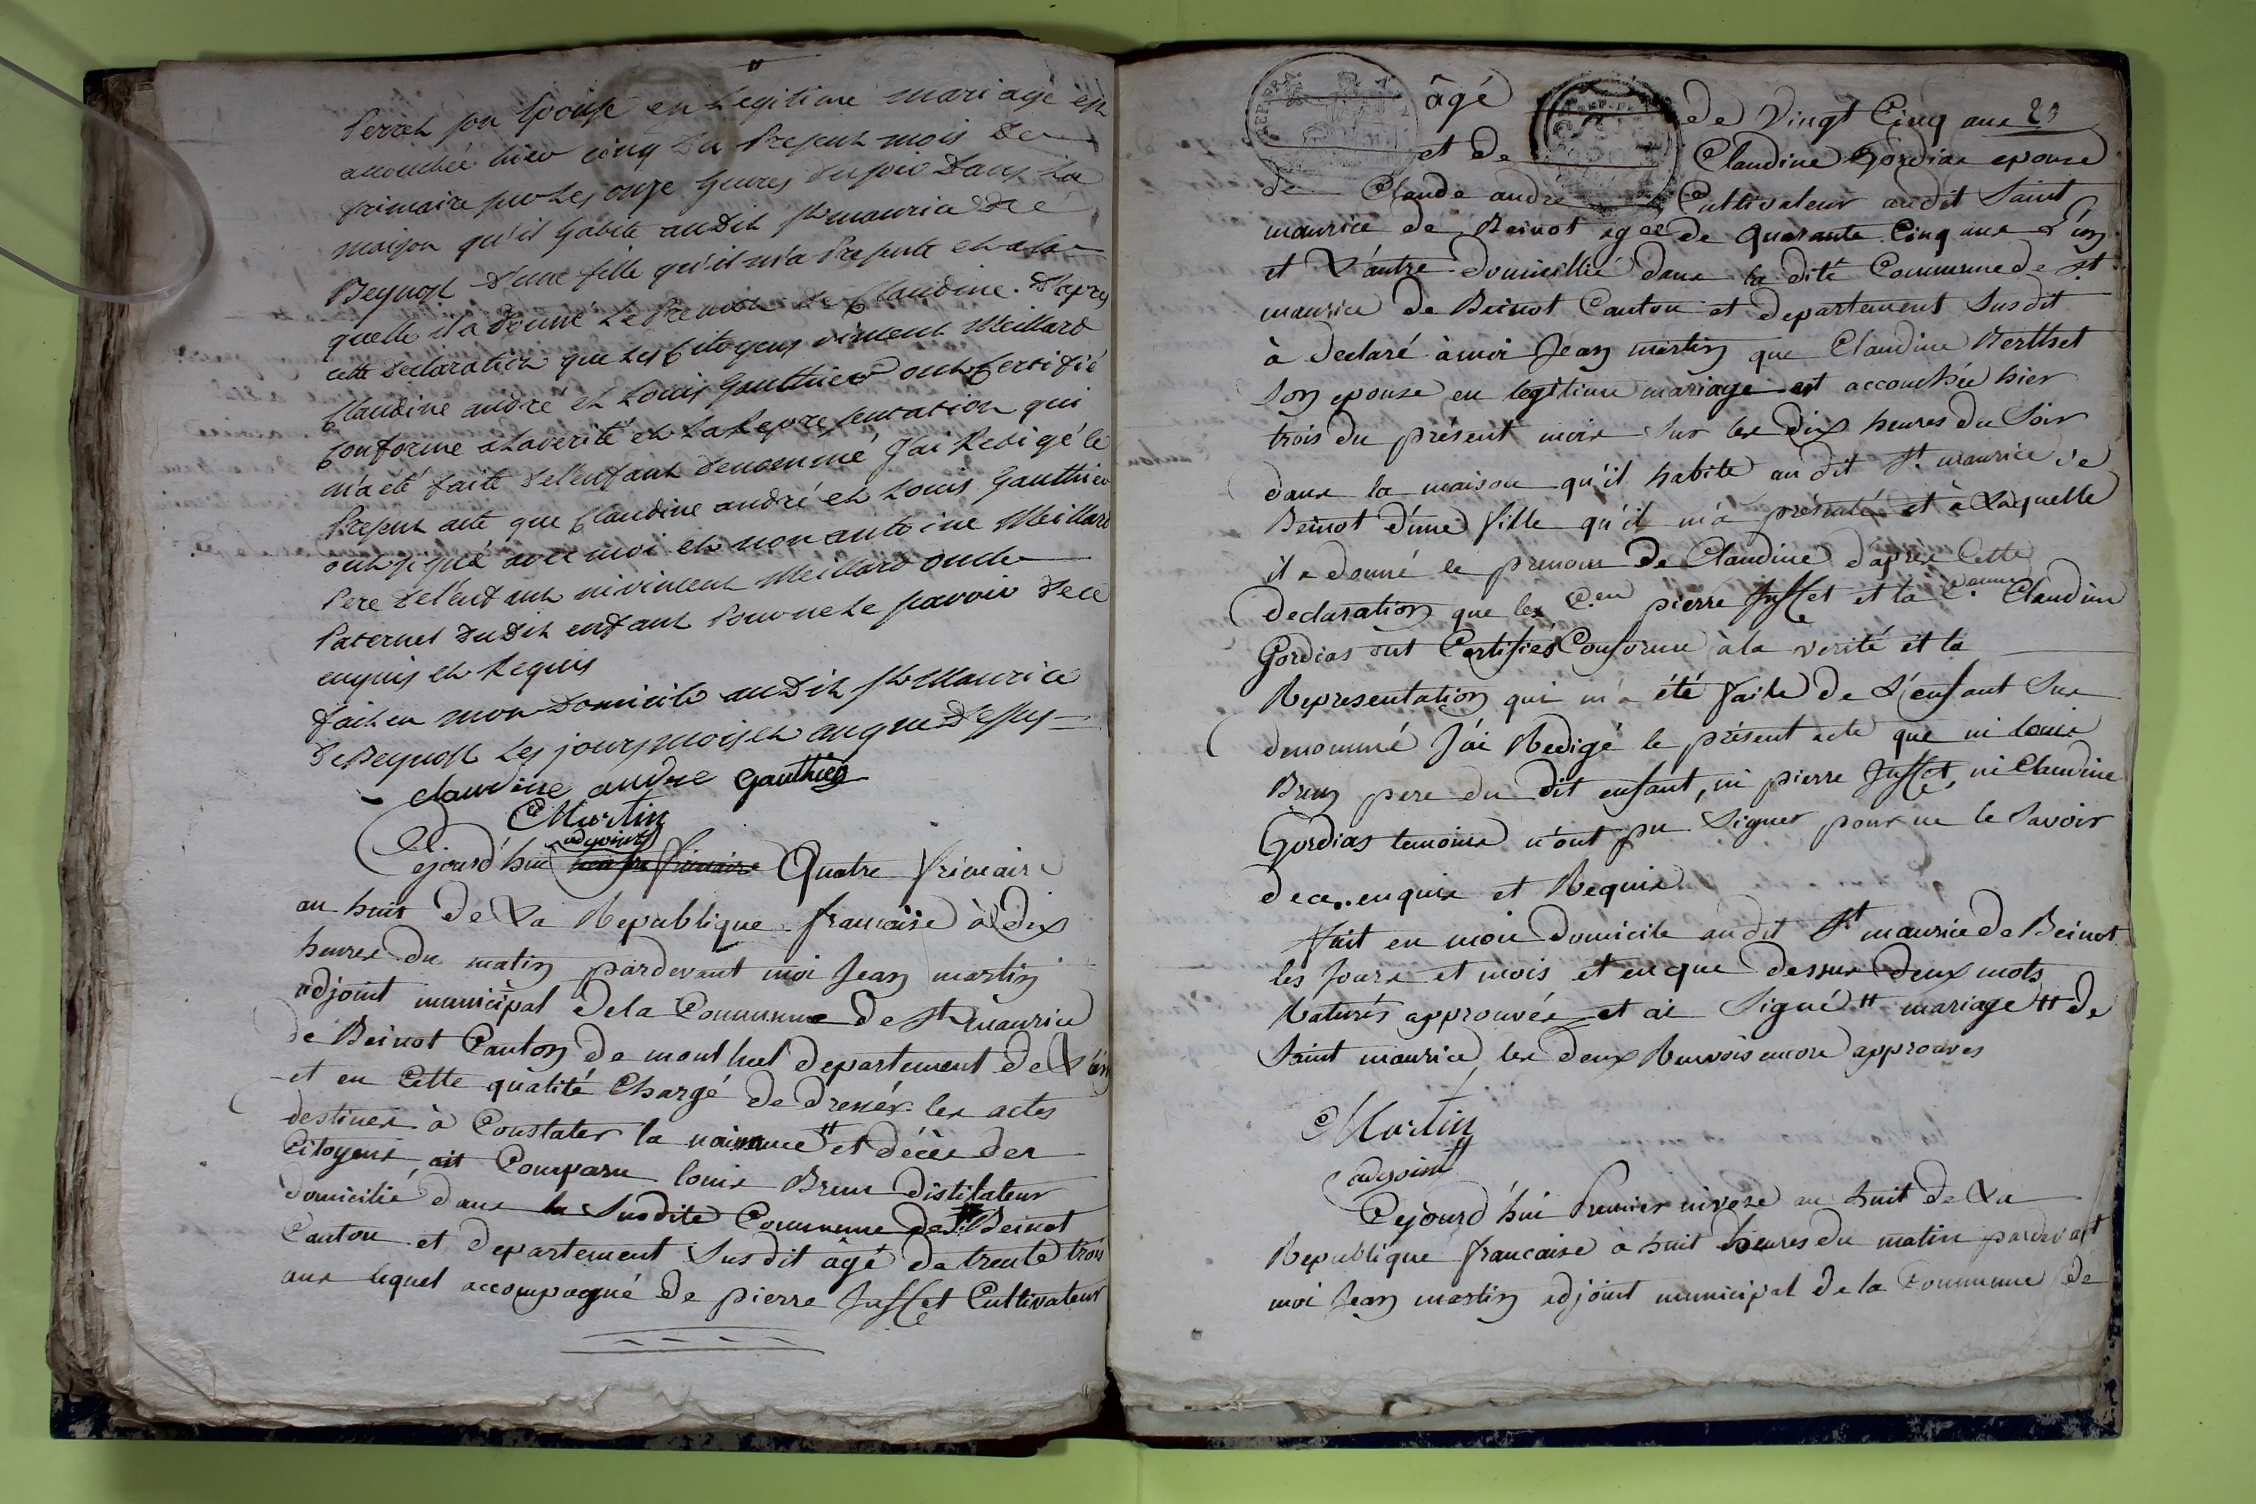 perret son Epouse en Legitime mariage est
acouchée hier cinq du Present mois de
frimaire sur les onze heures du soir Dans La
maison qu'il habite audit St maurice De
Beynost d'une fille qu'il m'a Presenté et a la
quelle il a donné Le Prenom de Claudine. D'apres
cette declaration que Les Citoyens vincent Meillard
Claudine andré et Louis Gauthier ont Certifié
Conforme a la verité et La Representation qui
m'a été faite de l'enfant denommé J'ai Redigé le
Present acte que Claudine andré et Louis Gauthier
ont signé avec moi et non antoine Meillard
Pere de l'enfant ni vincent Meillard oncle
Paternel dudit enfant Pour ne Le savoir de ce
enquis et Requis
fait en mon Domicile audit St Maurice
de Beynost Les jours mois et an que Dessus
Claudine andre Gauthier
Martin
adjoint
Cejourd'hui Quatre frimaire
an huit de La Republique francaise à dix
heures du matin pardevant moi Jean martin
adjoint municipal dela Commune de St maurice
de Beinot Canton de montluel departement de L'ain
et en Cette qualité Chargé de dresser les actes
destines à Constater la naissance " et décès des
Citoyens, ait Comparu louis Brun distilateur
domicilié dans la Susdite Commune de " Beinot
Canton et departement Susdit âgé de trente trois
ans lequel accompagné de pierre Jusset Cultivateur
âgé de Vingt Cinq ans 23
et de Claudine Gordias epouse
de Claude andre Cultivateur audit Saint
maurice de Beinot agée de Quarante Cinq ans L'un
et L'autre domicillié dans la dite Commune de St
maurice de Beinot Canton et departement Susdit
à declaré à moi Jean martin que Claudine Berthet
Son epouse en legitime mariage est accouchée hier
trois du présent mois Sur les Dix heures du Soir
dans la maison qu'il habite au dit St maurice de
Beinot d'une fille qu'il m'a présenté et à Laquelle
il a donné le prenom de Claudine d'apres Cette
declaration que les C.en pierre Jusset et la C.enne Claudine
Gordias ont Certifiés Conforme à la verité et la
Representation qui m'a été faite de L'enfant Sus
denommé J'ai Redigé le présent acte que ni louis
Brun pere du dit enfant, ni pierre Jusset, ni Claudine
Gordias temoins n'ont pu Signer pour ne le Savoir
de ce.. enquis et Requis
fait en moi domicile au dit St maurice de Beinot
les Jours et mois et en que dessus deux mots
Raturés approuvés et ai Signé " mariage " de
Saint maurice les deux Renvois encore approuvés
Martin
adjoint
Cejourd'hui Premier nivose an huit de La
Republique francaise à huit heures du matin pardevant
moi Jean martin adjoint municipal de la Commune de